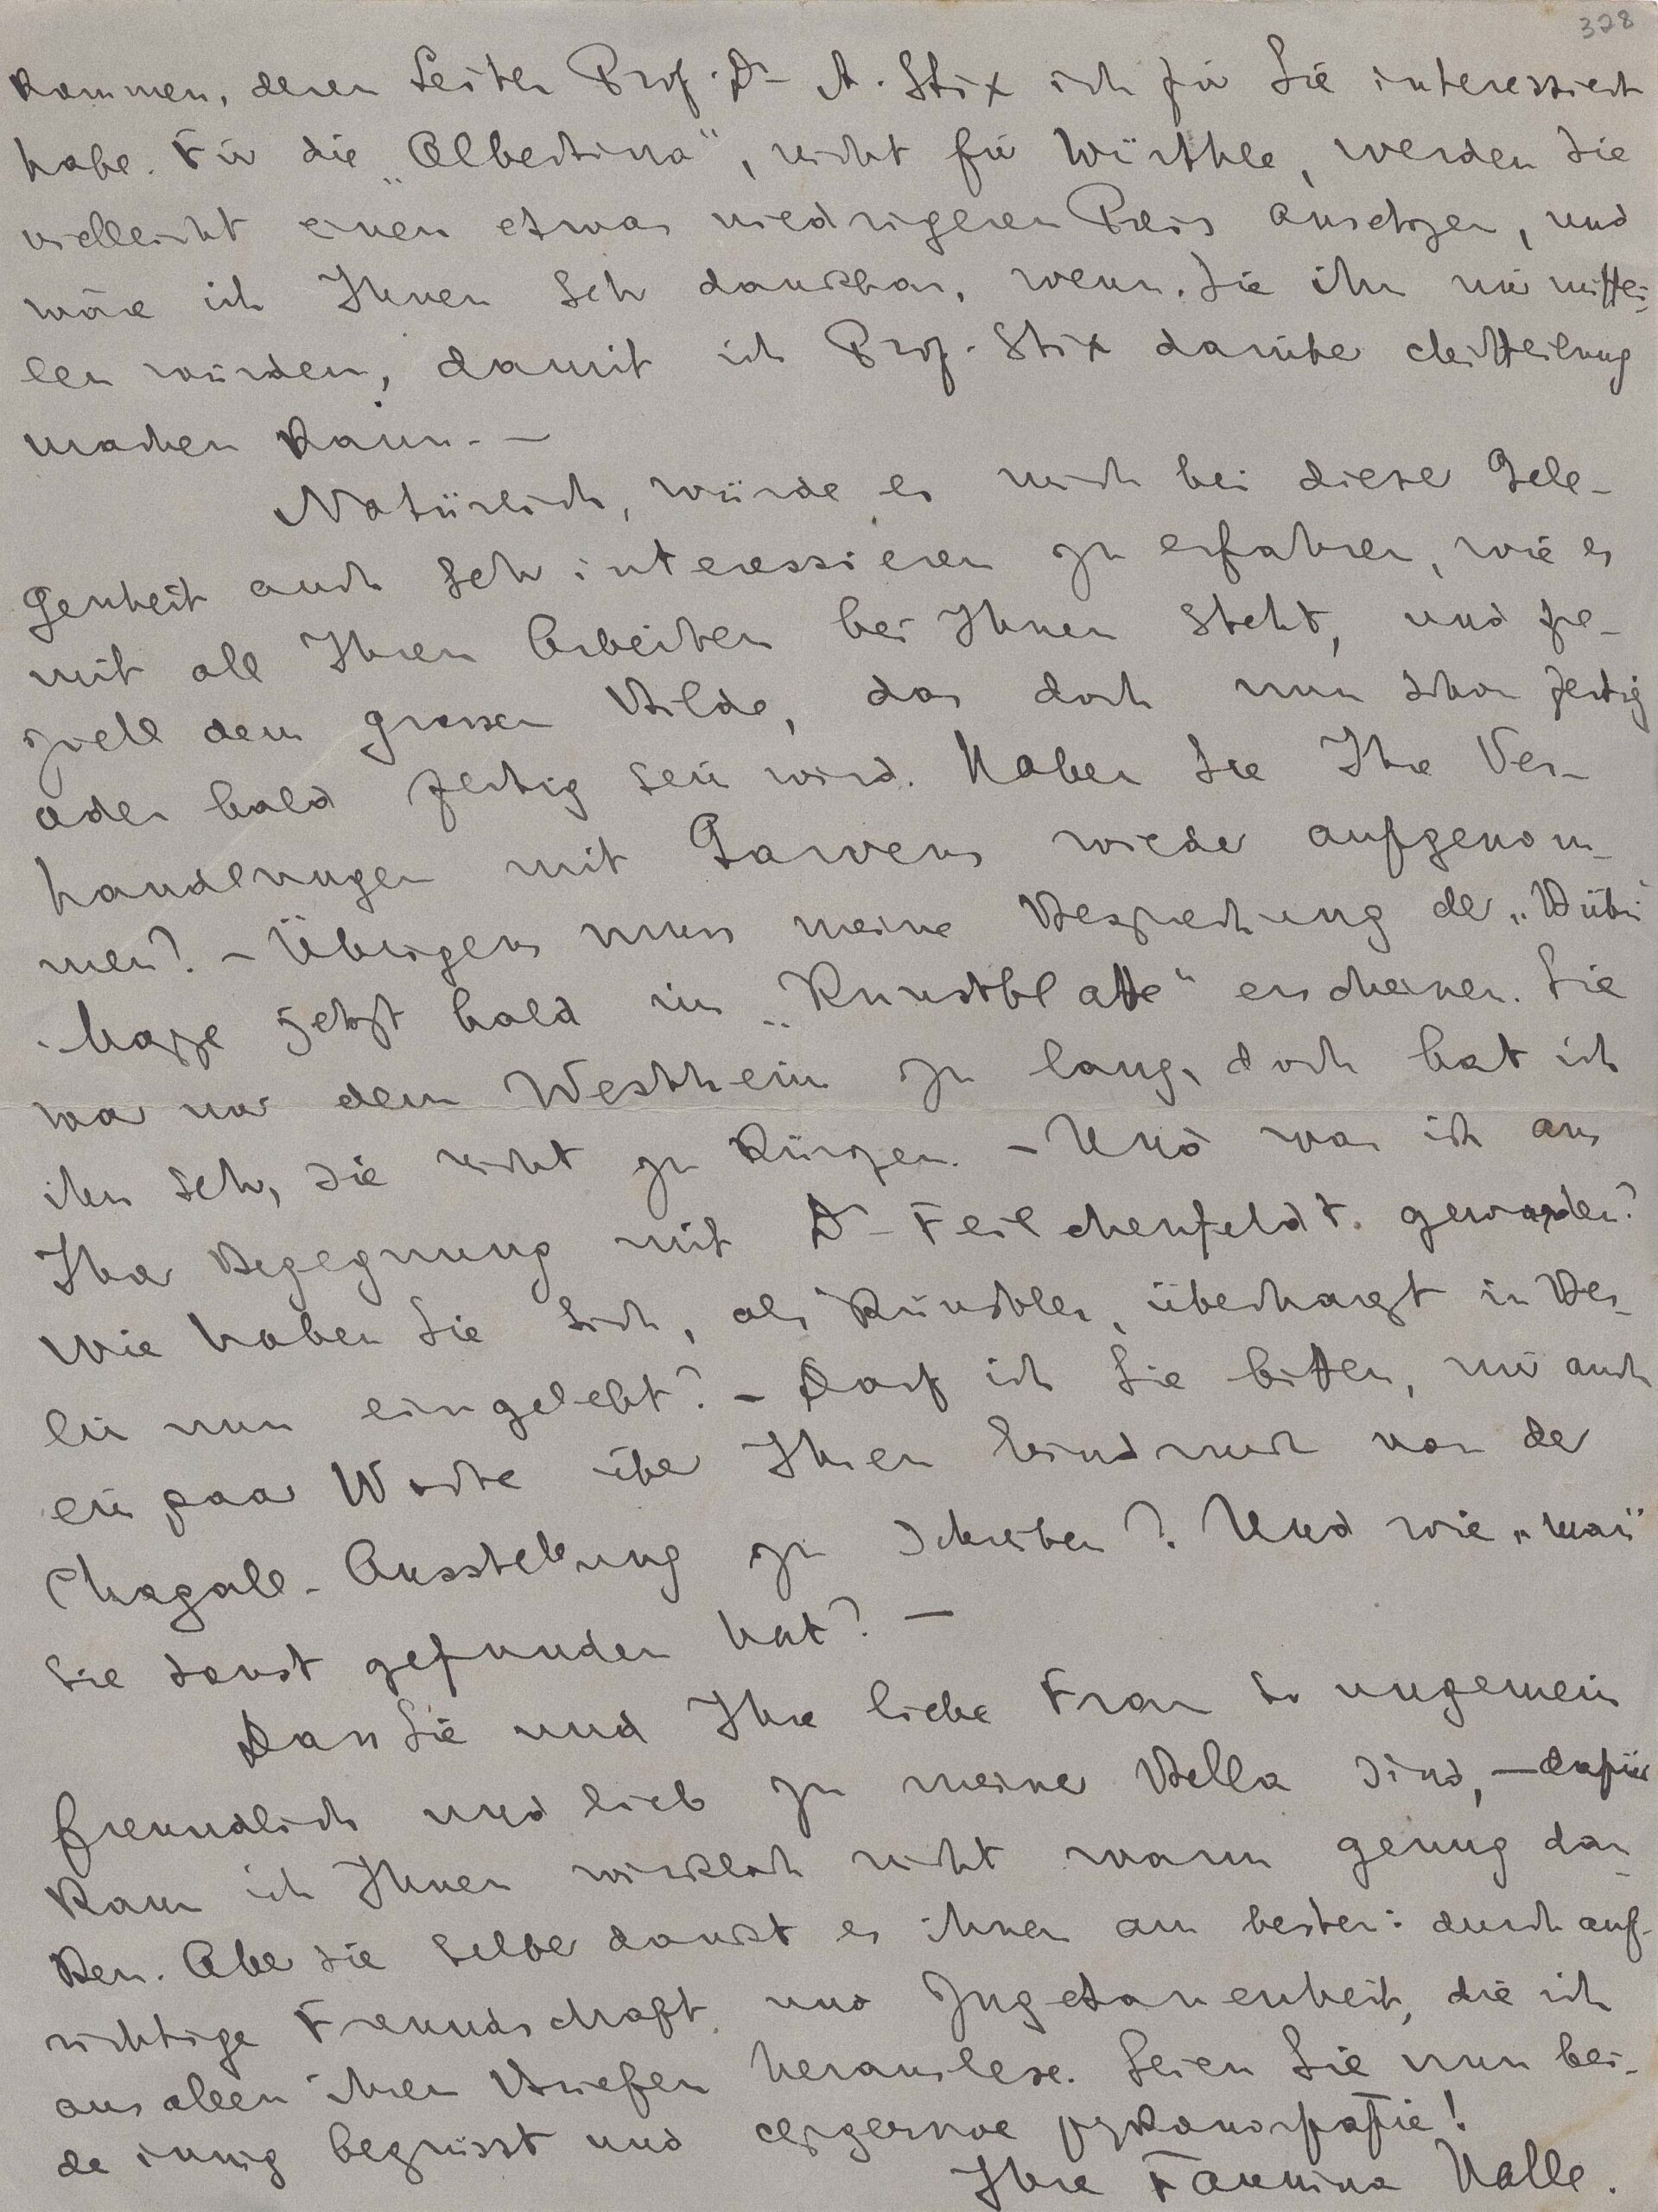 328
kommen, deren Leiter Prof. Dr A. Stix ich für Sie interessiert
habe. Für die „Albertina", nicht für Würthle, werden Sie
vielleicht einen etwas niedrigeren Preis ansetzen, und
wäre ich Ihnen sehr dankbar, wenn Sie ihn mir mittei-
len würden, damit ich Prof. Stix darüber Mitteilung
machen kann. —
Natürlich, würde es mich bei dieser Gele-
genheit auch sehr interessieren zu erfahren, wie es
mit all Ihren Arbeiten bei Ihnen steht, und spe-
ziell dem grossen Bilde, das doch nun schon fertig
oder bald fertig sein wird. Haben Sie Ihre Ver-
handlungen mit Garvens wieder aufgenom-
men? - Übrigens muss meine Besprechung der
jetzt bald im „Kunstblatte" erscheinen. Sie
war nur dem Westheim zu lang, doch bat ich
ihn sehr, sie nicht zu kürzen. - Und was ist aus
Ihrer Begegnung mit Dr Feilchenfeldt geworden?
Wie haben Sie sich, als Künstler, überhaupt in Ber-
lin nun eingelebt? - Darf ich Sie bitten, mir auch
ein paar Worte über Ihren Eindruck von der
Chagall-Ausstellung zu schreiben? Und wie „man"
sie sonst gefunden hat? —
Dass Sie und Ihre liebe Frau so ungemein
freundlich und lieb zu meiner Bella sind, — dafür
kann ich Ihnen wirklich nicht warm genug dan-
ken. Aber sie selber dankt es ihnen am besten: durch auf-
richtige Freundschaft und Zugetanenheit, die ich
aus allen ihren Briefen herauslese. Seien Sie nun bei-
de innig begrüsst und
Ihre Fannina Halle.